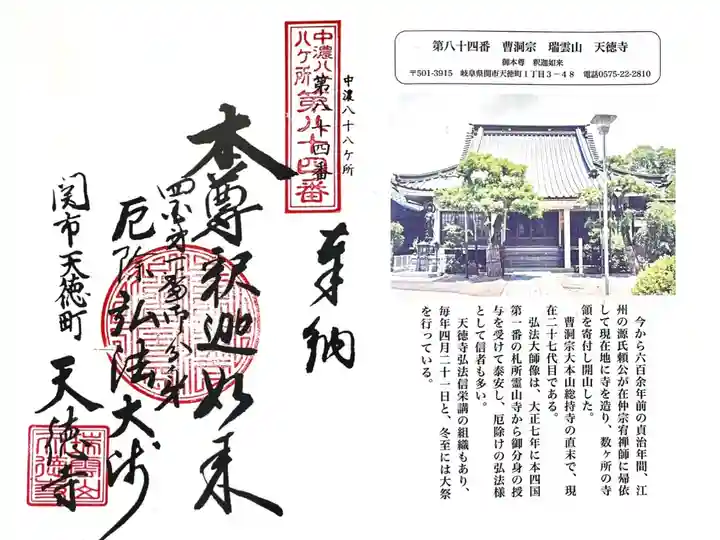 第八十四番 曹洞宗 瑞雲山 天徳寺
御本尊 釈迦如来
〒501-3915 岐阜県関市天徳町1丁目3-48 電話0575-22-2810
今から六百余年前の貞治年間、江
州の源氏頼公が在仲宗宥禅師に帰依
して現在地に寺を造り、数ヶ所の寺
領を寄付し開山した。
曹洞宗大本山総持寺の直末で、現
在二十七代目である。
弘法大師像は、大正七年に本四国
第一番の札所霊山寺から御分身の授
与を受けて奉安し、厄除けの弘法様
として信者も多い。
天徳寺弘法信栄講の組織もあり、
毎年四月二十一日と、冬至には大祭
を行っている。
奉納
中濃八十八ヶ所
第八十四番
中濃八十八ヶ所
第八十四番
本尊釈迦如来
厄除弘法大師
関市天徳町
天徳寺
瑞雲山
天徳寺